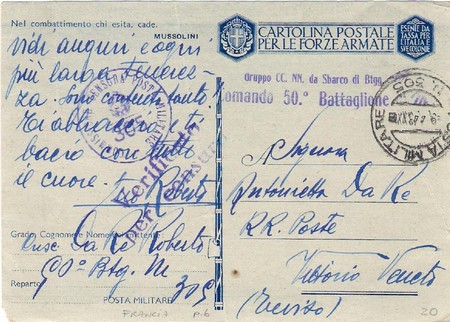 Nel combattimento chi esita, cade.
MUSSOLINI
vidi auguri e ogni
più larga
za. Son contentento.
Ti abbraccio e ti
bacio con tutto
il cuore.
Roberto
Grado, Cognome e Nome del mittente
Da Re Roberto
Btg. M
Reparto
POSTA MILITARE 305
FRANCIA P.6
CARTOLINA POSTALE
PER LE FORZE ARMATE
ESENTE DA
TASSA PER
L'ITALIA E
Gruppo CC. NN. da Sbarco di Btgg.
Comando 50.° Battaglione
POSTA MILITARE
N. 305
Verificato
per censura
Signora
Antonietta Da Re
RR. Poste
Vittorio Veneto
(Treviso)
20